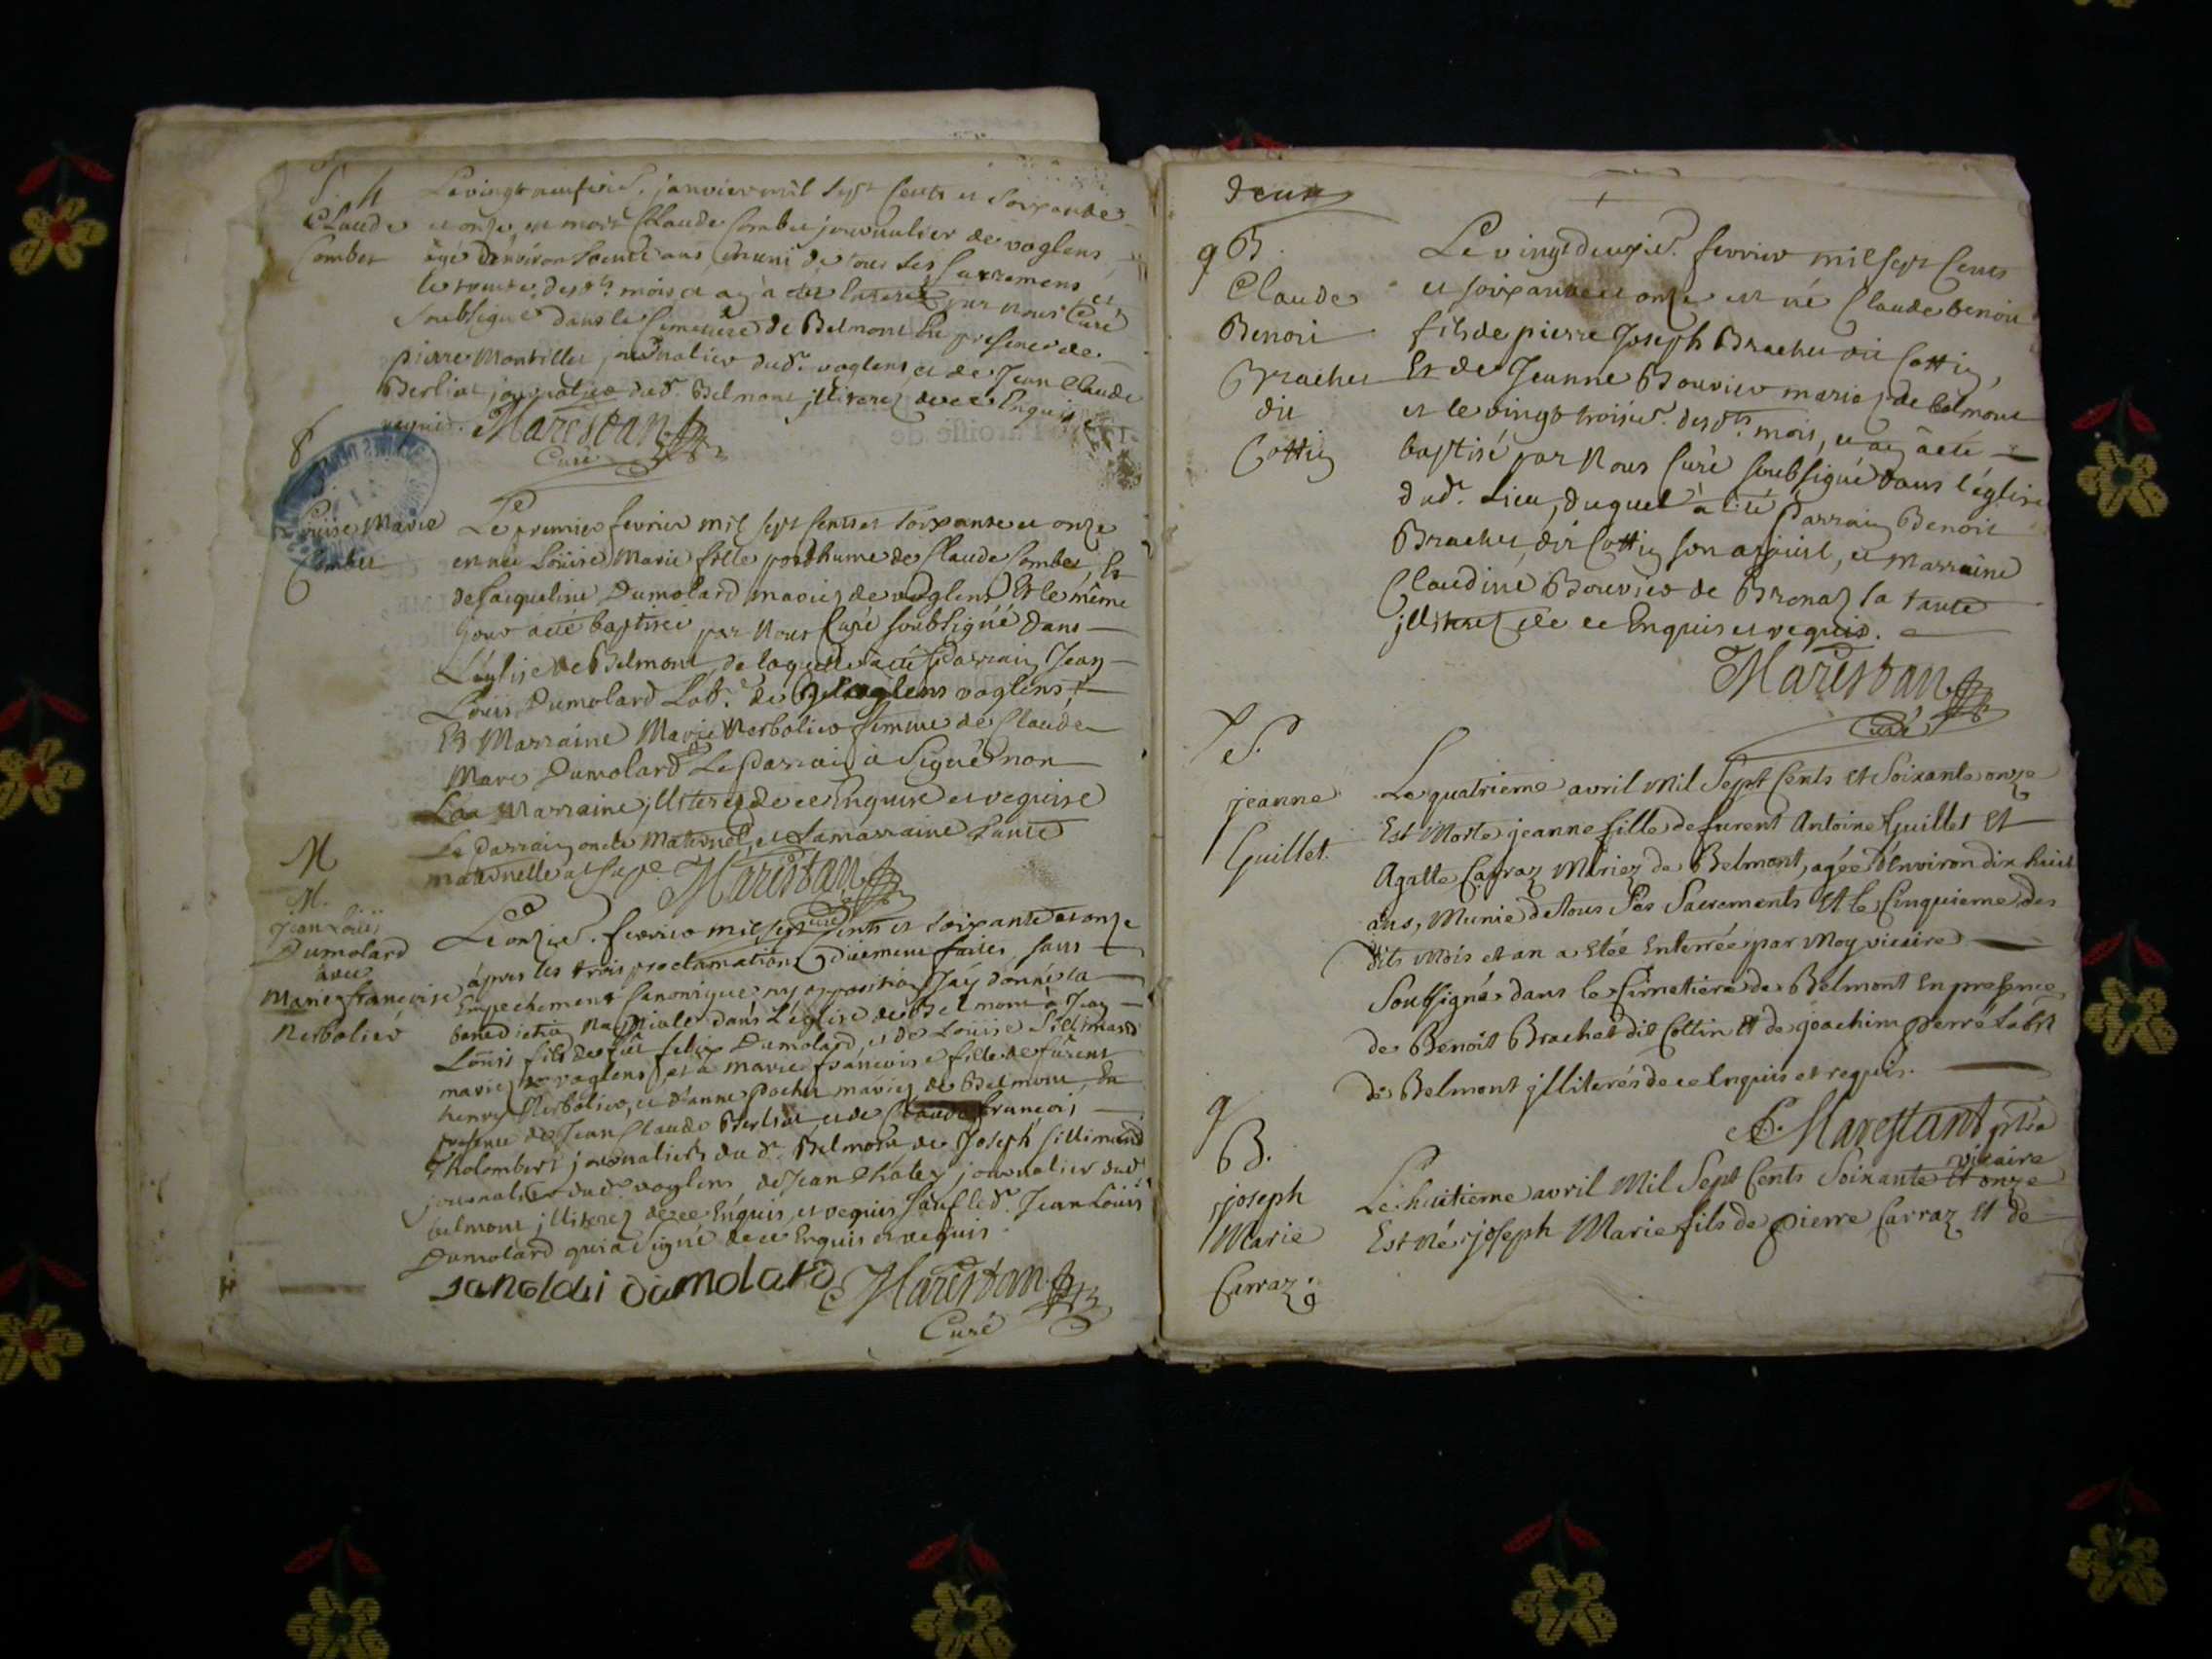 S. 4
Claude
Combet
Le vingt neufvie. janvier mil sept cents et soixante
et onze, est mort Claude Combet journalier de voglens
âgé d'environ trente ans, muni de tous les sacremens, et
le trente. desdts mois et an à été enterré par nous Curé
soubsigné dans le Cimetière de Belmont En presence de
pierre Montillet journalier dudt. voglens, et de Jean Claude
Berliat journalier dudt. Belmont jlliterez de ce Enquis et
requis. Marestan
Curé
Louise Marie
Combet
Le premier fevrier mil sept cents et soixante et onze
est née Loüise Marie fille posthume de Claude Combet, Et
de Jacqueline Dumolard mariez de voglens Et le même
jour a été baptisée par Nous Curé soubsigné dans
L'église de Belmont, de laquelle a été Parrain Jean
Loüis Dumolard Labr. de voglens
Et Marraine Marie Nerbolier femme de Claude
Marc Dumolard Le Parrain à signé non
La Marraine jlliterez de ce Enquise et requise
Le Parrain oncle Maternel, et la marraine tante
maternelle
Marestan
curé
M
M.
Jean Loüis
Dumolard
avec
Marie françoise
Nerbolier
Le onzie. fevrier mil sept cents et soixante et onze
âpres les trois proclamations düement faites, sans
Empechement Canonique, ny opposition J'ay donné la
benediction Nuptiale dans L'église de Belmont à Jean
Loüis fils de feu felix Dumolard, et de Louise Sillimand
mariez de voglens, et à marie françoise fille de furent
henry Nerbolier, et d'anne Pochet mariez de Belmont, En
presence de Jean Claude Berliat, et de Claude françois
Tholombert journaliers du dt. Belmont de Joseph Sillimand
journalier dudt voglens de Jean Chatey journalier dudt
belmont jlliterez de ce Enquis, et requis sauf ledt. Jean Loüis
Dumolard qui a signé de ce Enquis et requis.
Janoloui dumolard Marestan
Curé
deux
9 B.
Claude
Benoit
Brachet
dit
Cottin
Le vingt deuxie. fevrier mil sept cents
et soixante et onze est né Claude benoit
fils de pierre Joseph Brachet dit Cottin,
Et de Jeanne Bouvier mariez de belmont
et le vingt troisie. desdts mois, et an à été
baptisé par Nous Curé soubsigné dans l'église
dudt. Lieu, duquel à été Parrain Benoit
Brachet, dit Cottin son ayeul, et Marraine
Claudine Bouvier de Bronaz sa tante
jlliterez de ce Enquis et requis.
Marestan
Curé
S.
jeanne
Guillet
Le quatrieme avril Mil Sept Cents et Soixante onze
Est Morte jeanne fille de furent Antoine Guillet Et
Agatte Carraz Mariez de Belmont, agée d'Environ dix huit
ans, Munie de tous Ses Sacrements Et le Cinquieme des
dits Mois et an a Etée Enterrée par Moy vicaire
Soussigné dans le Cimetiere de Belmont En presence
de Benoit Brachet dit Cottin Et de joachim perret Labr
de Belmont jlliterés de ce Enquis et requis.
Marestant ptre
vicaire
9
B.
joseph
Marie
Carraz
Le huitieme avril Mil Sept Cents Soixante Et onze
Est Né joseph Marie fils de pierre Carraz Et de